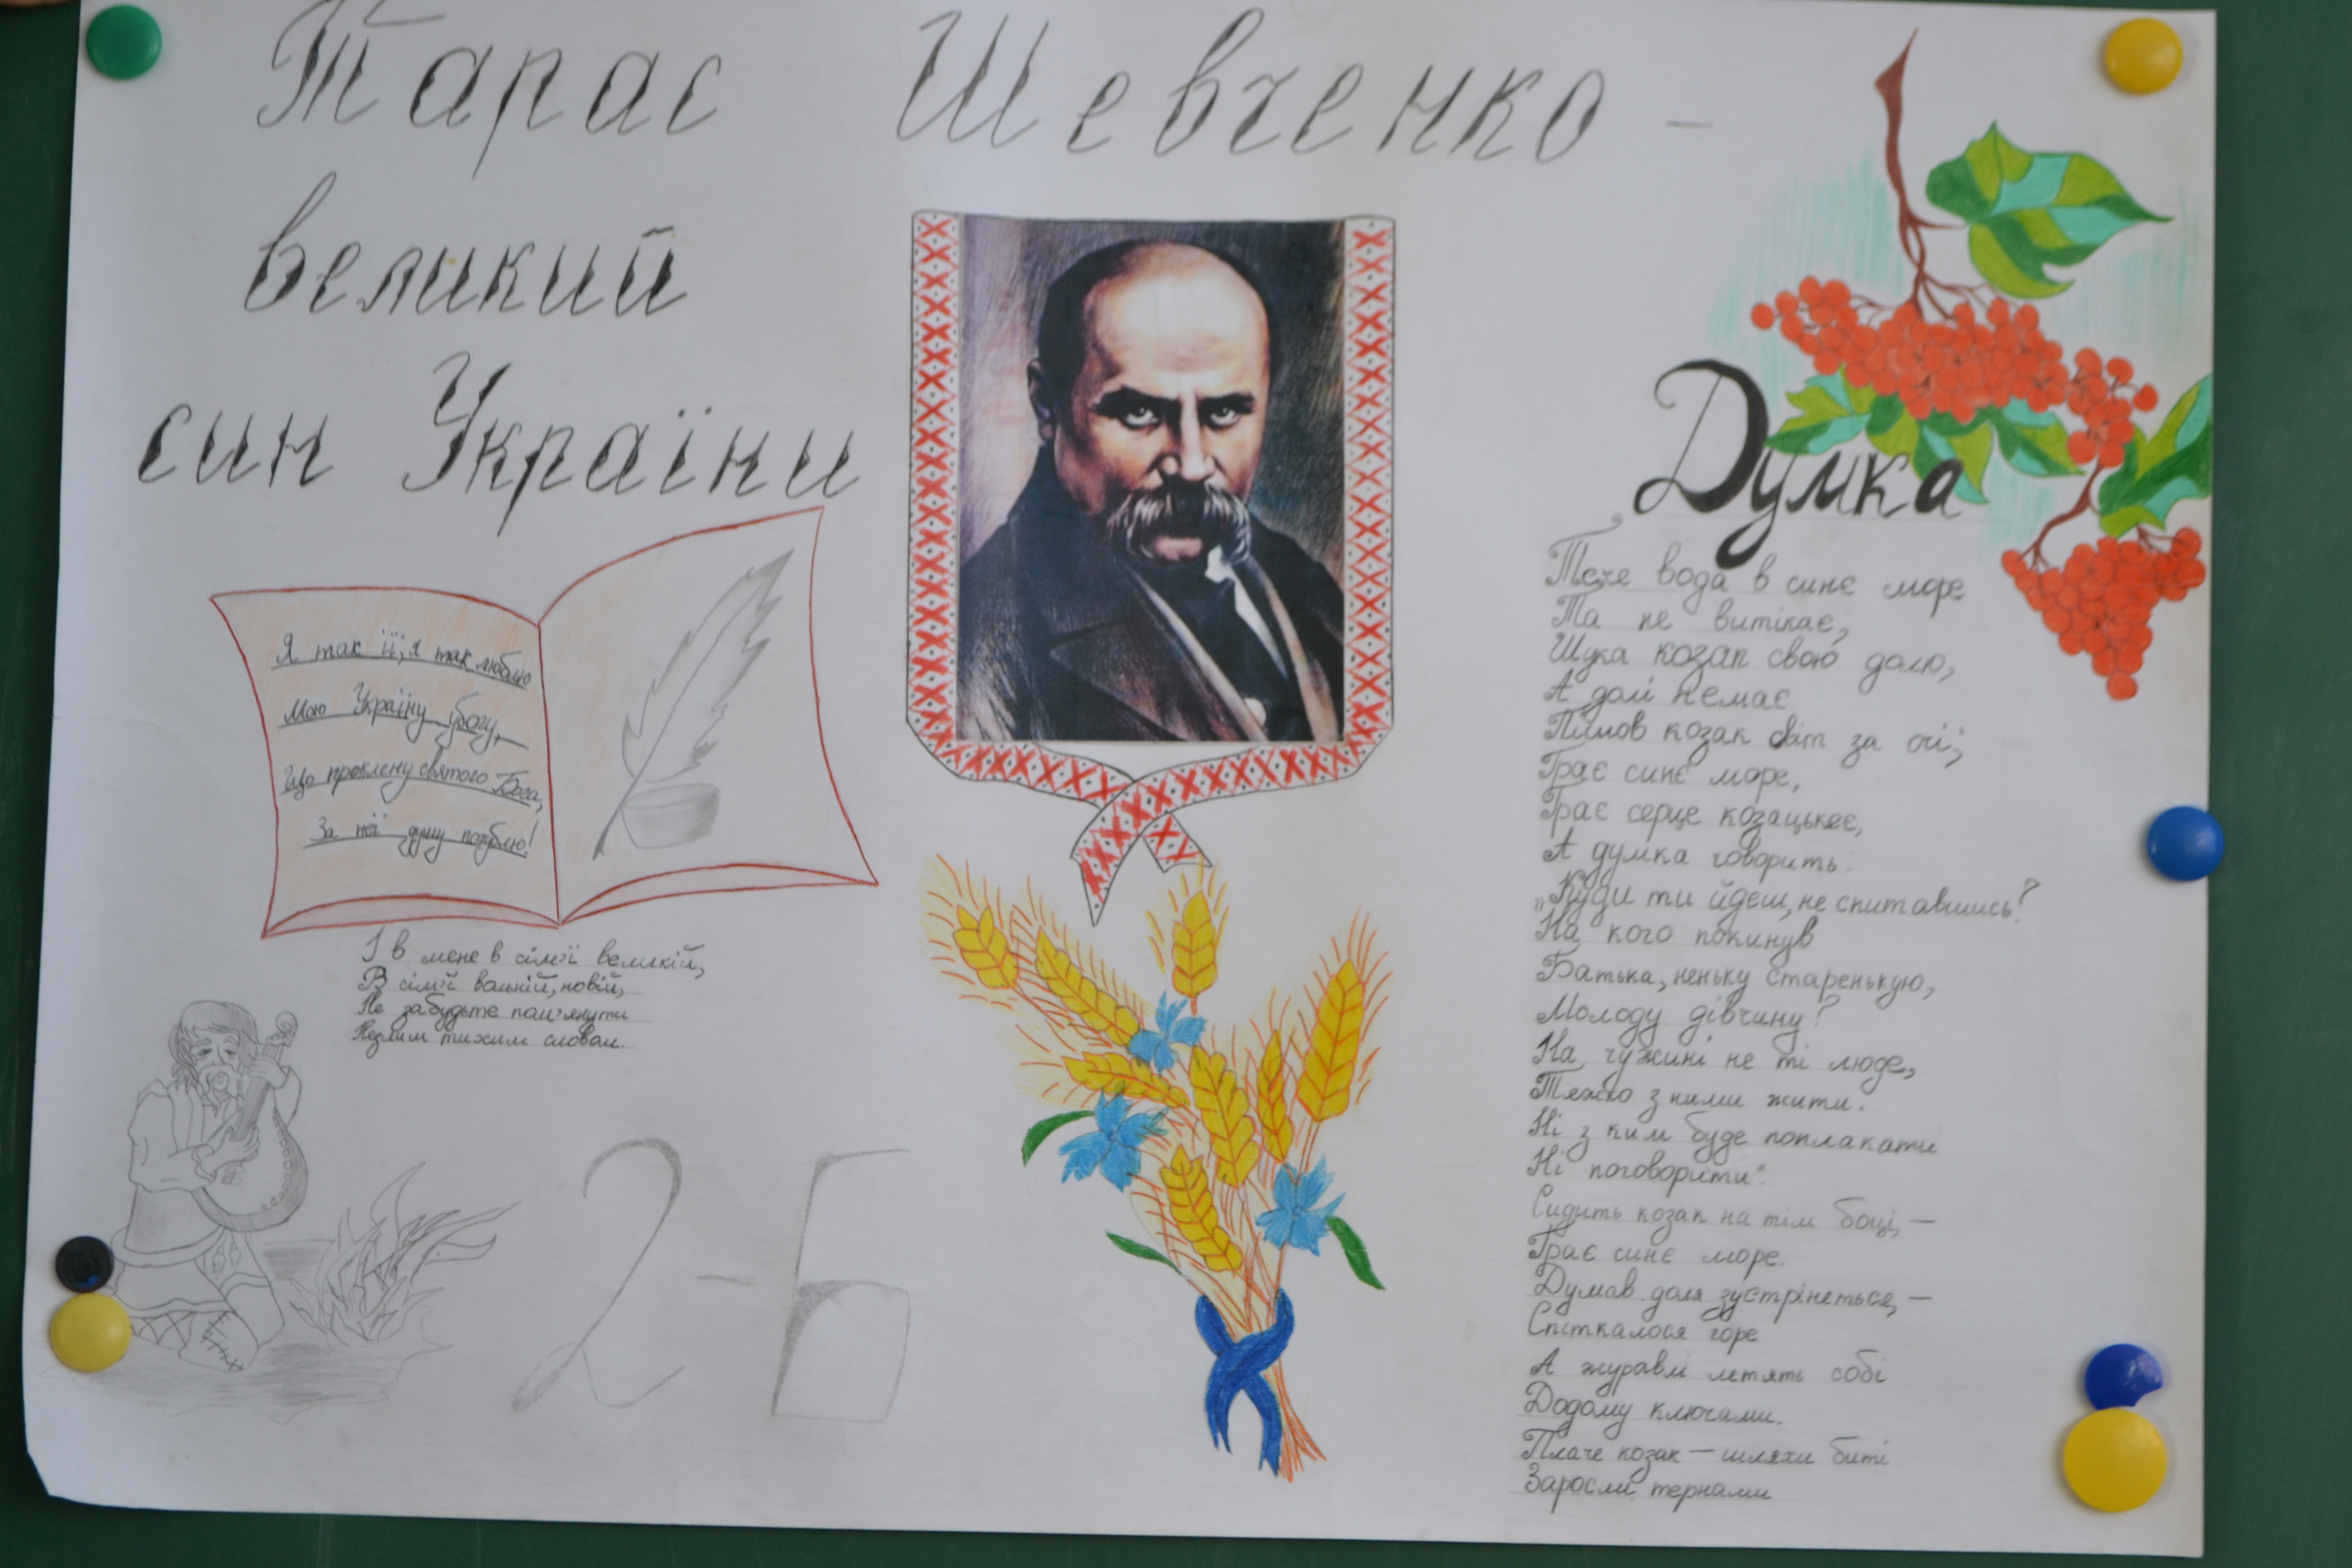 Тарас Шевченко –
великий
син України
Я так її, я так люблю
Мою Україну убогу,
Що проклену святого Бога,
За неї душу погублю!
І в мене в сім'ї великій,
В сім'ї вольній, новій,
Не забудьте пом'янути
Незлим тихим словом.
2-Б
Думка
Тече вода в синє море
Та не витікає,
Шука козак свою долю,
А долі немає
Пішов козак світ за очі;
Грає синє море,
Грає серце козацькеє,
А думка говорить:
„Куди ти йдеш, не спитавшись?
На кого покинув
Батька, неньку старенькую,
Молоду дівчину?
На чужині не ті люде,
Тяжко з ними жити.
Ні з ким буде поплакати
Ні поговорити".
Сидить козак на тім боці, –
Грає синє море.
Думав доля зустрінеться, –
Спіткалося горе
А журавлі летять собі
Додому ключами.
Плаче козак – шляхи биті
Заросли тернами